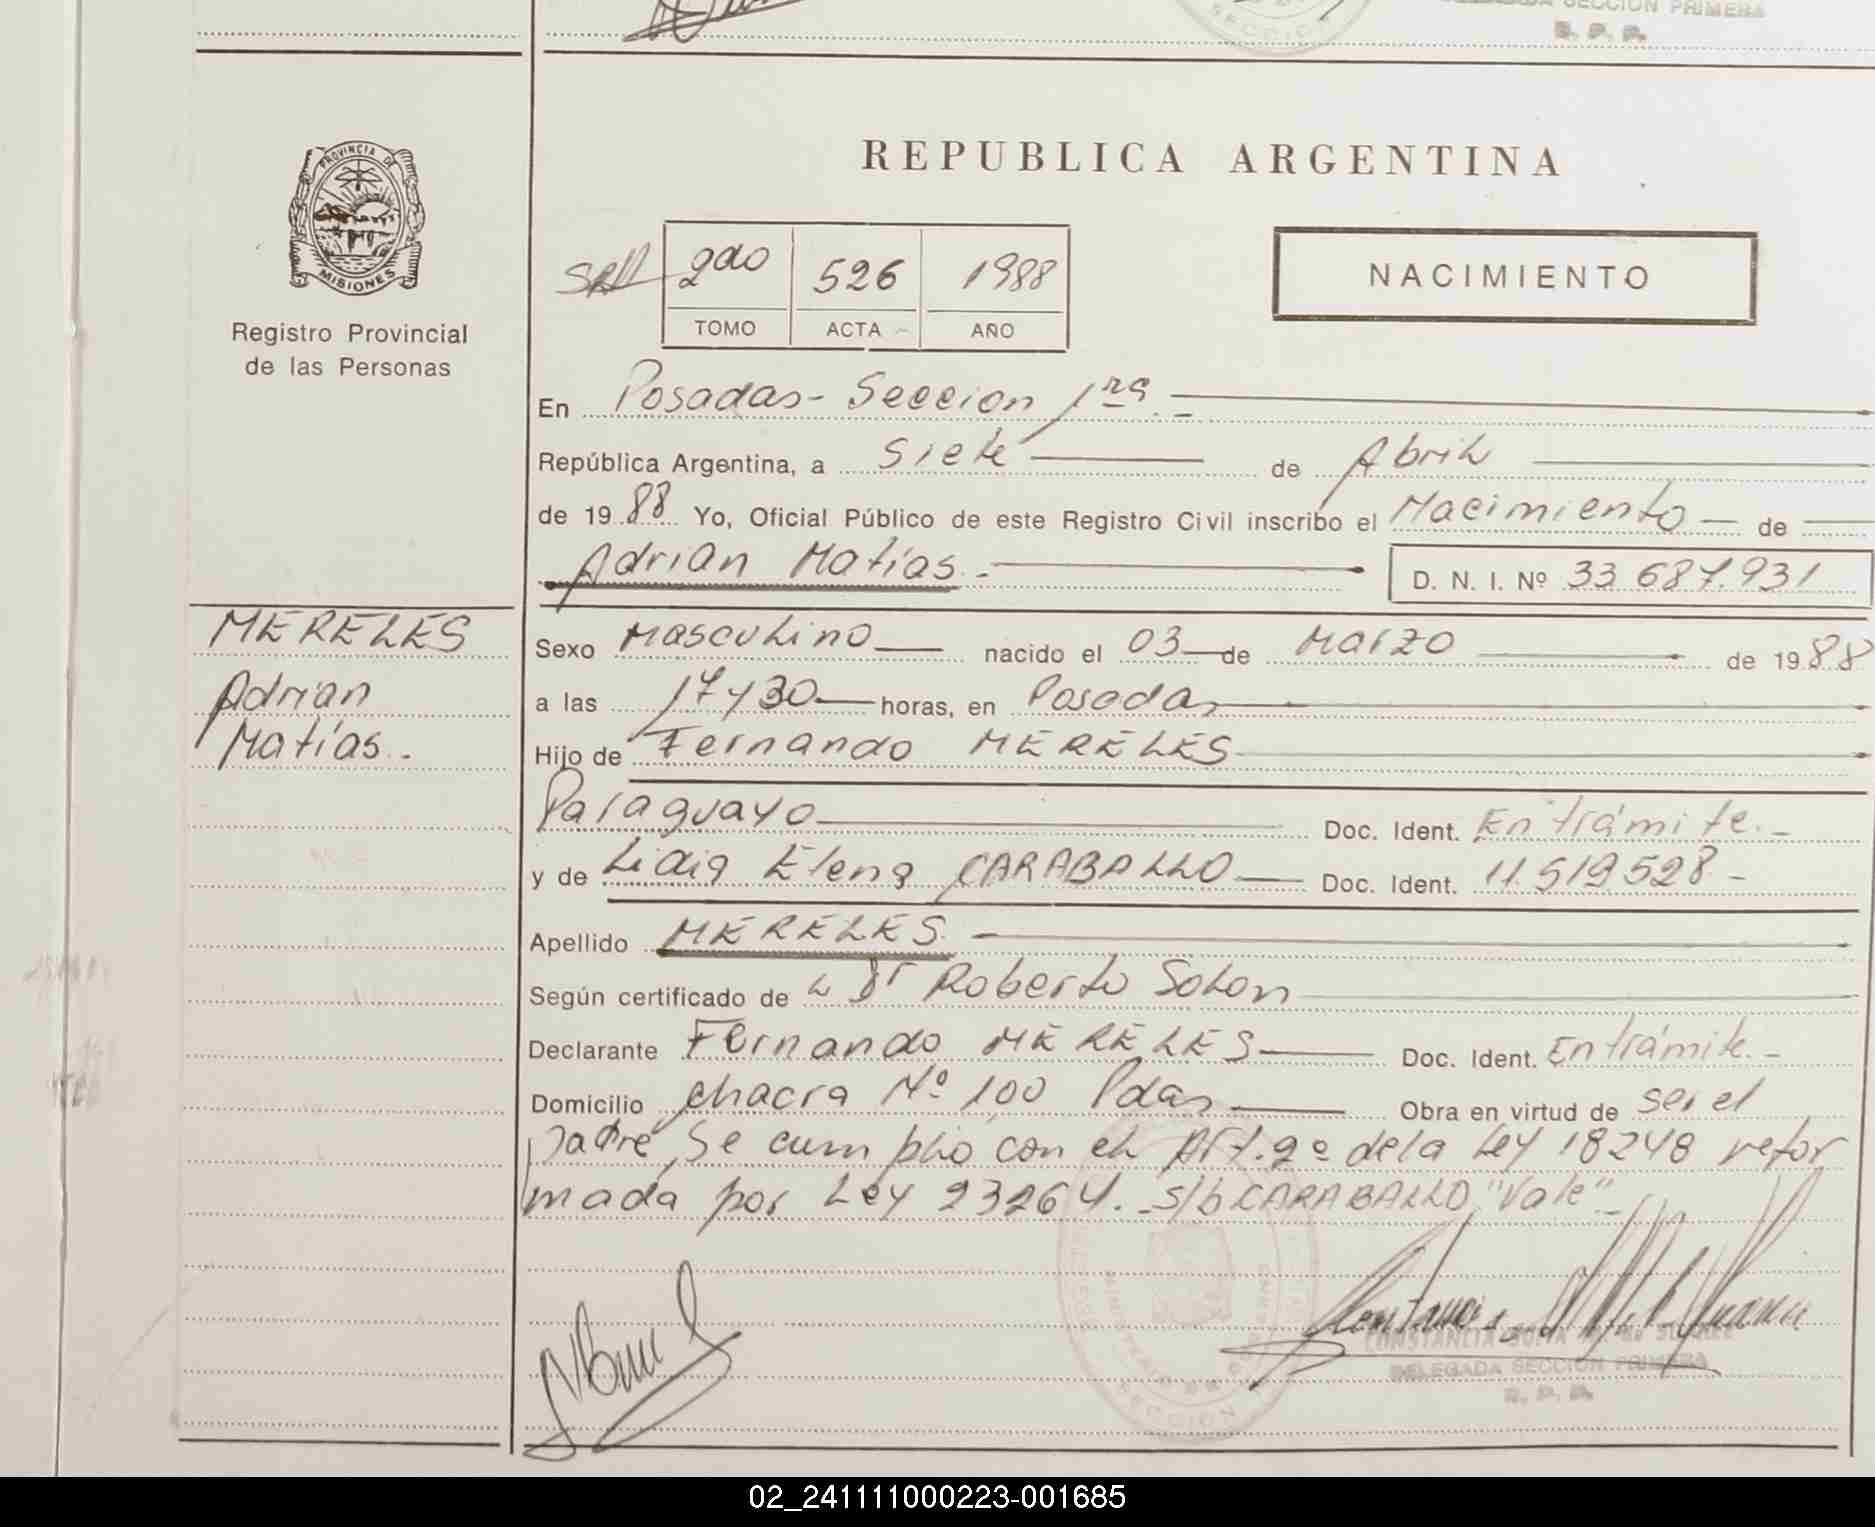 DELEGADA SECCION PRIMERA
SECCION
R. P. P.
PROVINCIA DE
MISIONES
Registro Provincial
de las Personas
REPUBLICA ARGENTINA
2do 526 1988
TOMO ACTA AÑO
NACIMIENTO
En Posadas - Seccion 1ra. -
República Argentina, a Siete de Abril
de 1988 Yo, Oficial Público de este Registro Civil inscribo el Nacimiento de
Adrian Matías.- D. N. I. Nº 33.687.931
MERELES
Adrian
Matías.-
Sexo Masculino nacido el 03 de Marzo de 1988
a las 17 y 30 horas, en Posadas
Hijo de Fernando MERELES
Paraguayo Doc. Ident. En trámite.-
y de Lidia Elena CARABALLO Doc. Ident. 11.519.528-
Apellido MERELES
Según certificado de Dr Roberto Solon
Declarante Fernando MERELES Doc. Ident. En trámite.-
Domicilio chacra Nº 100 Pdas Obra en virtud de ser el
padre, Se cumplio con el Art. 2º de la Ley 18248 refor
mada por Ley 23264.- s/b CARABALLO "Vale"-
DELEGADA SECCION PRIMERA
R. P. P.
SECCION
02_241111000223-001685